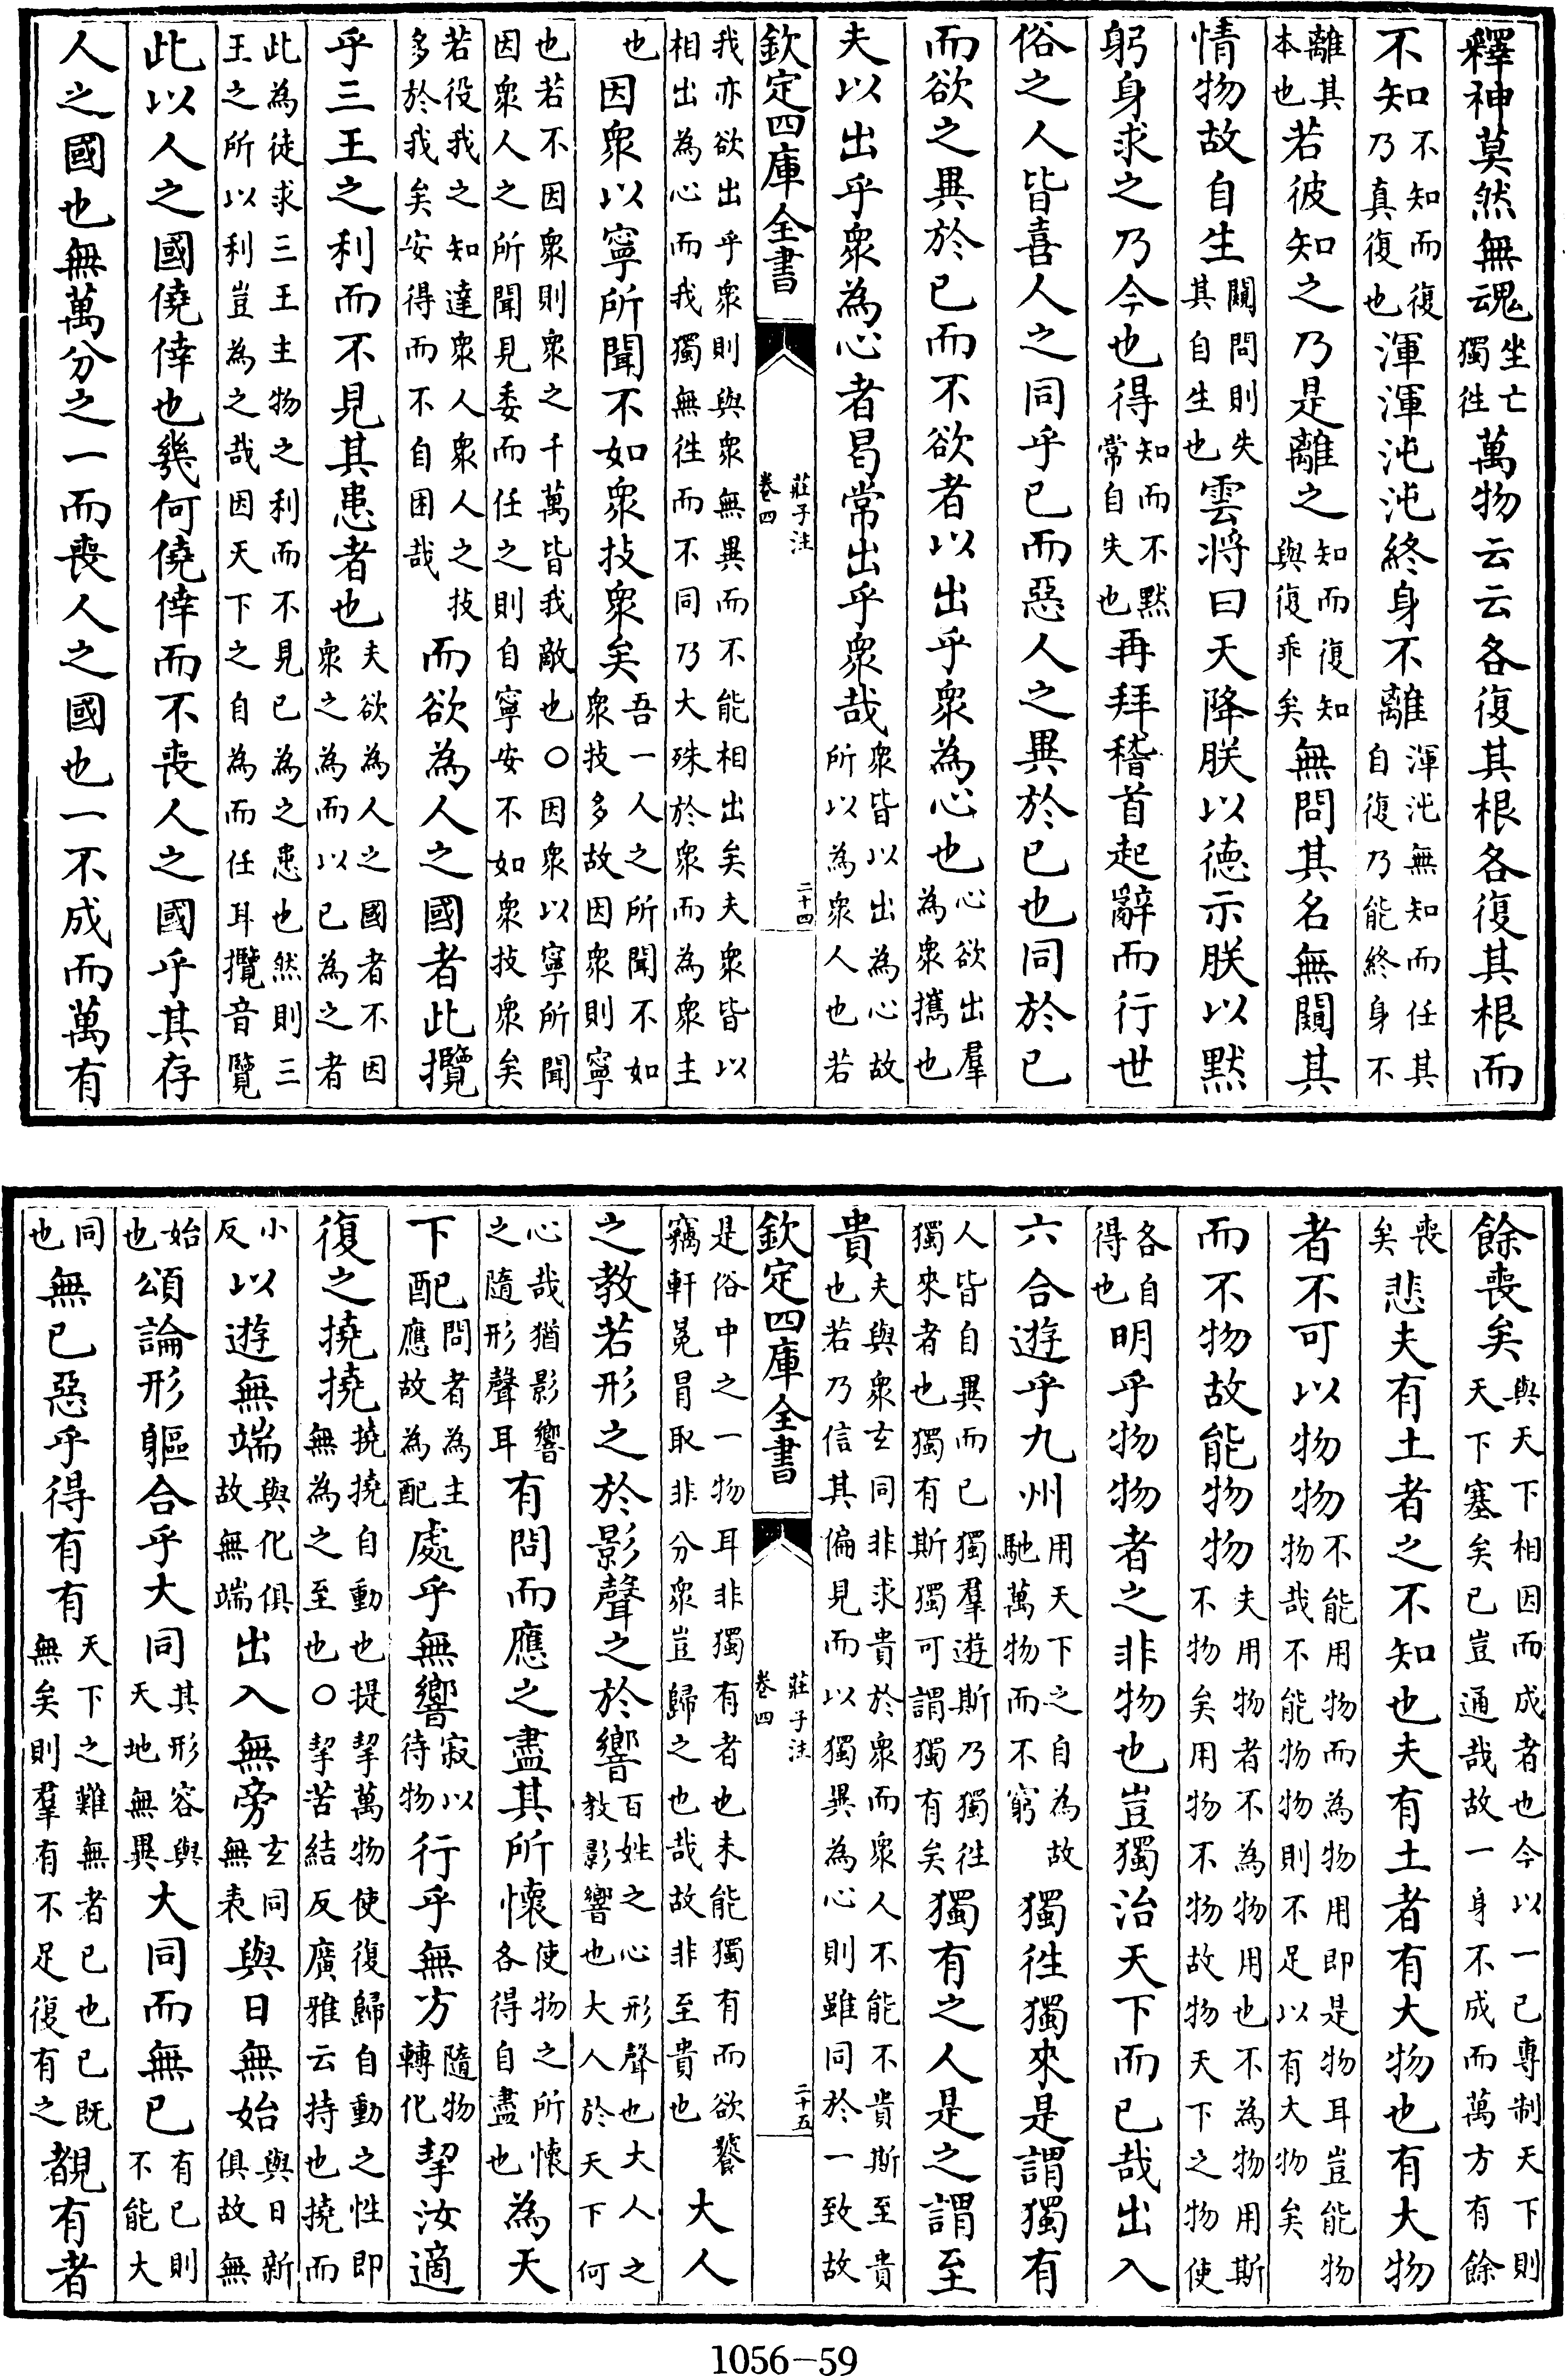 釋神莫然無魂坐亡獨徃萬物云云各復其根各復其根而
不知不知而復乃真復也渾渾沌沌終身不離渾沌無知而任其自復乃能終身不
離其本也若彼知之乃是離之知而復知與復乖矣無問其名無闚其
情物故自生闚問則失其自生也雲將曰天降朕以德示朕以默
躬身求之乃今也得知而不默常自失也再拜稽首起辭而行世
俗之人皆喜人之同乎已而惡人之異於已也同於已
而欲之異於已而不欲者以出乎衆為心也心欲出羣為衆攜也
夫以出乎衆為心者曷常出乎衆哉衆皆以出為心故所以為衆人也若
欽定四庫全書 莊子注 卷四 二十四
我亦欲出乎衆則與衆無異而不能相出矣夫衆皆以相出為心而我獨無徃而不同乃大殊於衆而為衆主
也因衆以寧所聞不如衆技衆矣吾一人之所聞不如衆技多故因衆則寧
也若不因衆則衆之千萬皆我敵也○因衆以寧所聞因衆人之所聞見委而任之則自寧安不如衆技衆矣
若役我之知達衆人衆人之技多於我矣安得而不自困哉而欲為人之國者此攬
乎三王之利而不見其患者也夫欲為人之國者不因衆之為而以已為之者
此為徒求三王主物之利而不見已為之患也然則三王之所以利豈為之哉因天下之自為而任耳攬音覽
此以人之國僥倖也㡬何僥倖而不喪人之國乎其存
人之國也無萬分之一而喪人之國也一不成而萬有
餘喪矣與天下相因而成者也今以一已專制天下則天下塞矣已豈通哉故一身不成而萬方有餘
喪矣悲夫有土者之不知也夫有土者有大物也有大物
者不可以物物不能用物而為物用即是物耳豈能物物哉不能物物則不足以有大物矣
而不物故能物物夫用物者不為物用也不為物用斯不物矣用物不物故物天下之物使
各自得也明乎物物者之非物也豈獨治天下而已哉出入
六合遊乎九州用天下之自為故馳萬物而不窮獨徃獨來是謂獨有
人皆自異而已獨羣遊斯乃獨徃獨來者也獨有斯獨可謂獨有矣獨有之人是之謂至
貴夫與衆玄同非求貴於衆而衆人不能不貴斯至貴也若乃信其偏見而以獨異為心則雖同於一致故
欽定四庫全書 莊子注 卷四 二十五
是俗中之一物耳非獨有者也未能獨有而欲饕竊軒冕冒取非分衆豈歸之也哉故非至貴也大人
之教若形之於影聲之於響百姓之心形聲也大人之教影響也大人於天下何
心哉猶影響之隨形聲耳有問而應之盡其所懷使物之所懷各得自盡也為天
下配問者為主應故為配處乎無響寂以待物行乎無方隨物轉化挈汝適
復之撓撓撓撓自動也提挈萬物使復歸自動之性即無為之至也○挈苦結反廣雅云持也撓而
小反以遊無端與化俱故無端出入無旁玄同無表與日無始與日新俱故無
始也頌論形軀合乎大同其形容與天地無異大同而無已有已則不能大
同也無已惡乎得有有天下之難無者已也已既無矣則羣有不足復有之覩有者
1056-59